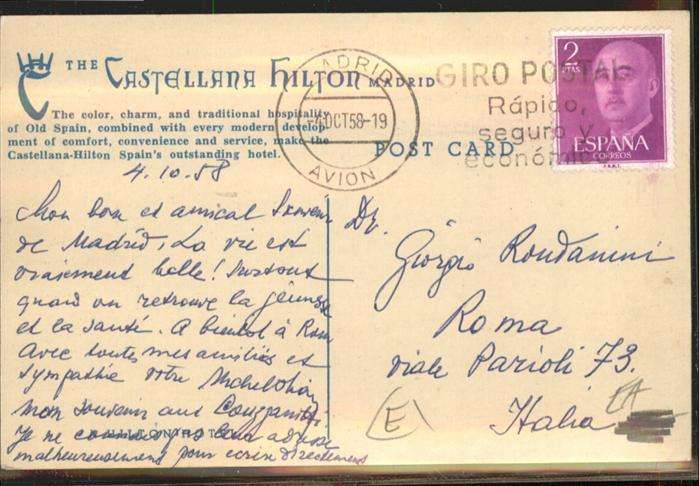 THE CASTELLANA HILTON MADRID
The color, charm, and traditional hospitality
of Old Spain, combined with every modern develop
ment of comfort, convenience and service, make the
Castellana-Hilton Spain's outstanding hotel.
POST CARD
MADRID
-4 OCT58-19
AVION
GIRO POSTAL
Rápido,
seguro y
económico
2
PTAS
ESPAÑA
CORREOS
4.10.58
Mon bon et amical Souvenir
de Madrid. La vie est
vraiement belle! Surtout
quand on retrouve la jeunesse
et la santé. A bientot à Rom
Avec toutes mes amitiés et
sympathie votre
mon souvenir aux
Je ne connais leur adresse
malheureusement pour ecrire directement
Dr.
Giorgio Rondanini
Roma
viale Parioli 73.
Italia
E